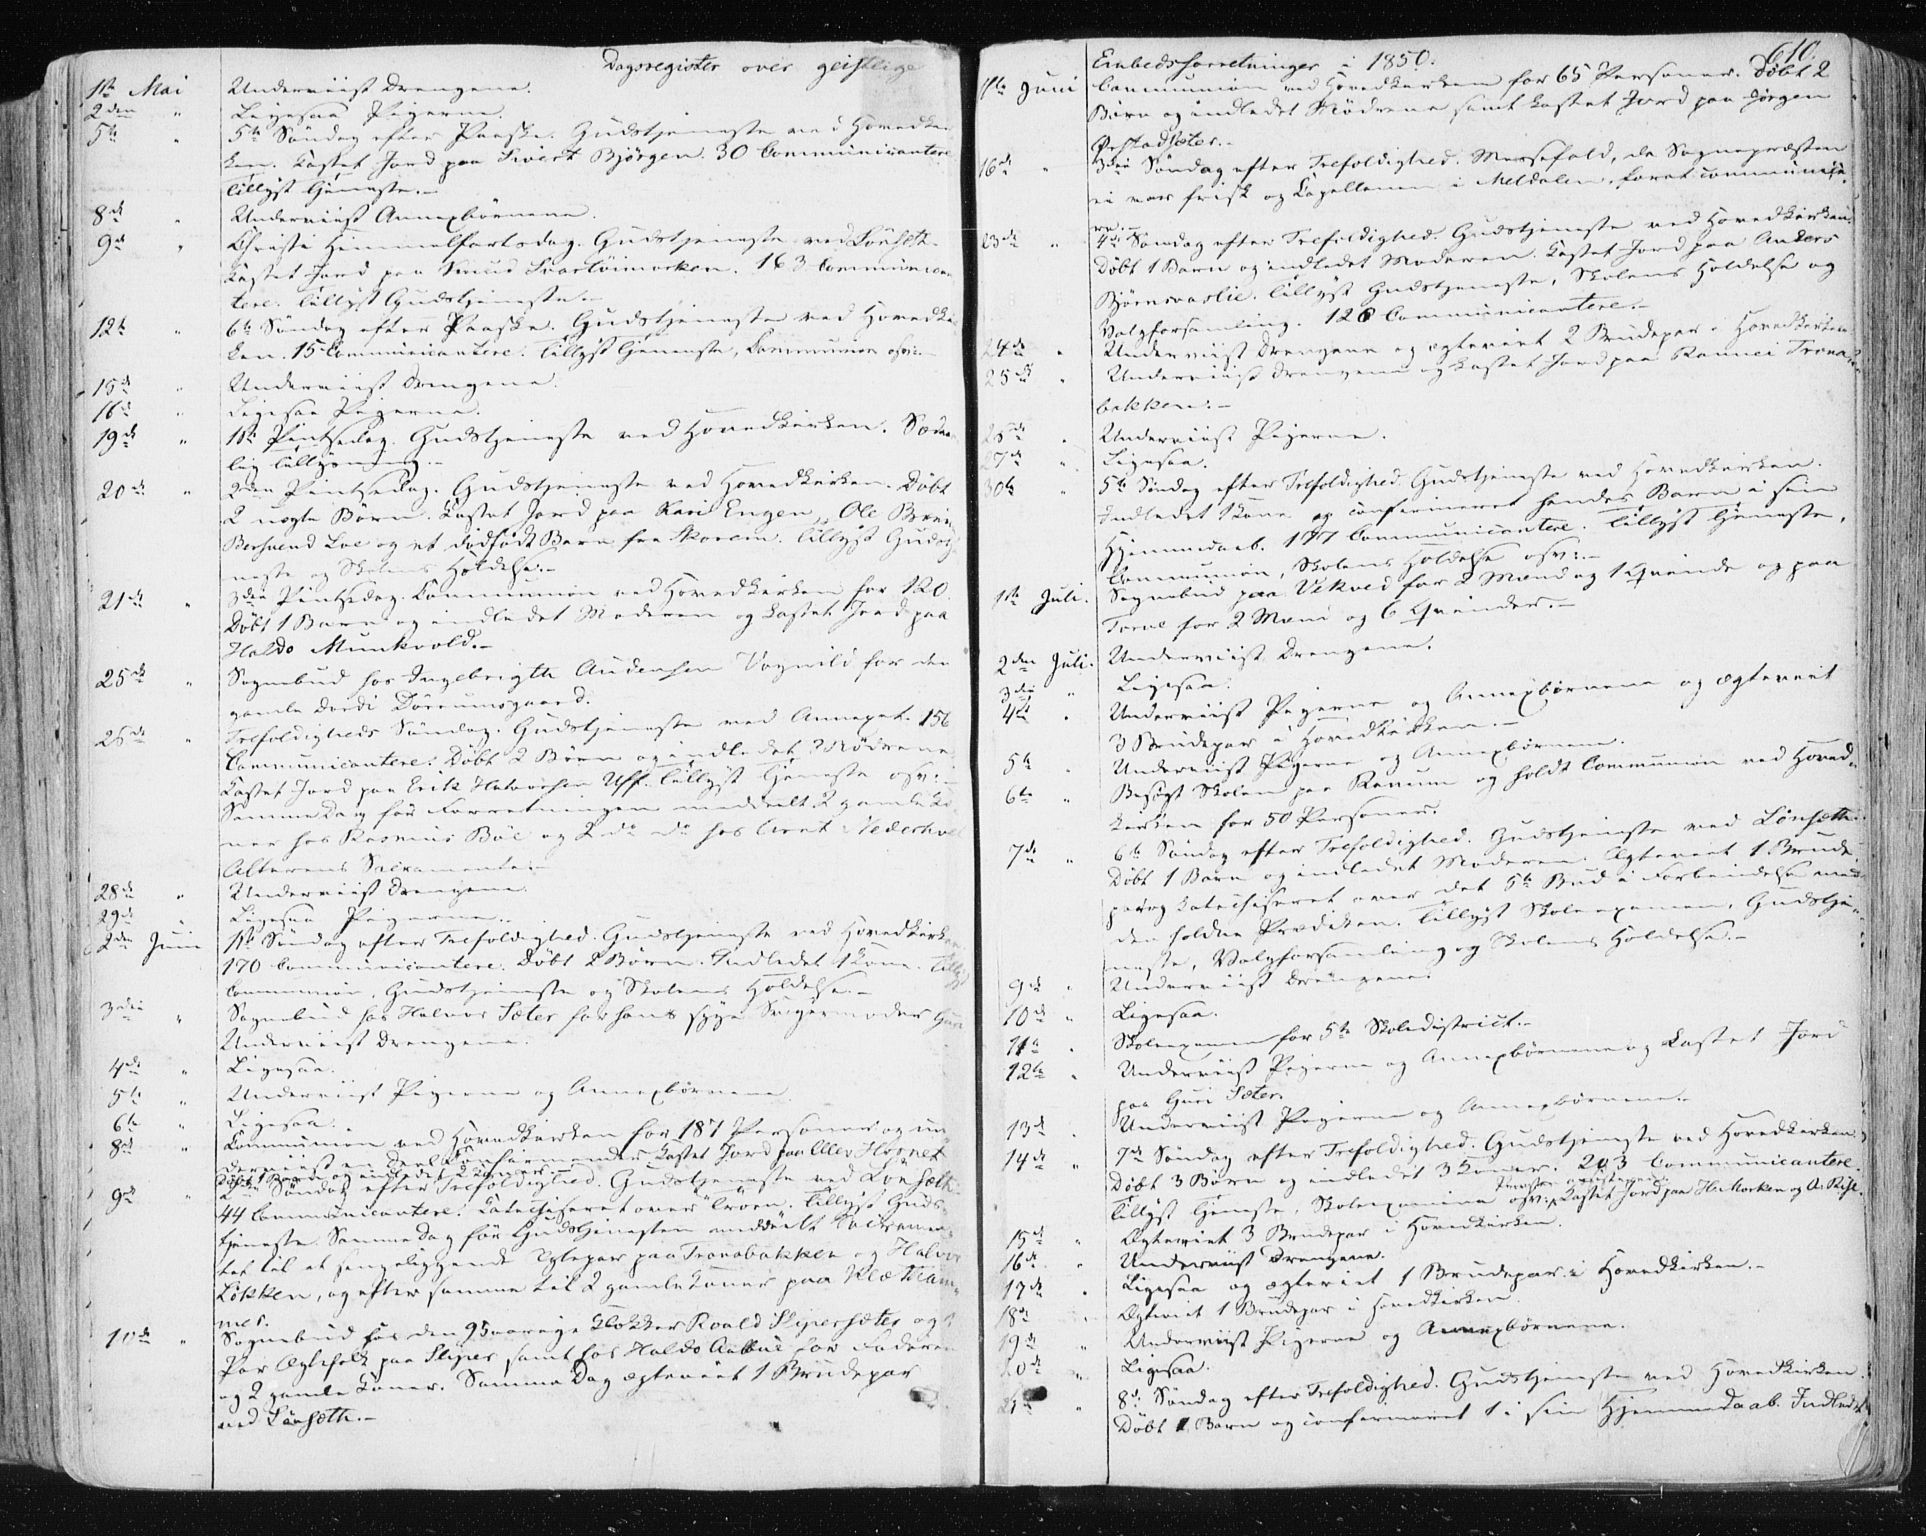 Dagsregister over geistlige
1ste Mai Underviist Drengene.
2den " Ligesaa Pigerne.
5te " 5te Søndag efter Paaske. Gudstjeneste ved Hovedkir-
ken. Kastet Jord paa Sivert Bjørgen. 30 Communicantere
tillyst Tjeneste.-
8de " Underviist Annexbørnene.
9de " Christi Himmelfartsdag. Gudstjeneste ved Lønseth.
Kastet Jord paa Knud Svartøimoeken. 163 Communican-
tere. tillyst Gudstjeneste.-
12te " 6te Søndag efter Paaske. Gudstjeneste ved Hovedkir-
ken. 15 Communicantere. Tillyst Tjeneste, Communion osv:-
15de " Underviist Drengene.
16de " Ligesaa Pigerne.
19de " 1ste Pintsedag. Gudstjeneste ved Hovedkirken. Sædvan-
lig tillysning.-
20de " 2den Pintsedag. Gudstjeneste ved Hovedkirken. Døbt
2 uægte Børn. Kastet Jord paa Kari Engen, Ole
Bersvend Loe og et dødfødt Barn fra Skorem. Tillyst Gudstje-
neste og Skolens Holdelse.-
21de " 3die Pintsedag. Communion ved Hovedkirken for 120.
Døbt 1 Barn og indledet Moderen og kastet Jord paa
Haldo Munkvold.-
25de " Sognebud hos Ingebrigte Audensen Vognild for den
gamle Dordi Dørrumsgaard.
26de " Trefoldigheds Søndag. Gudstjeneste ved Annexet. 156
Communicantere. Døbt 2 Børn og indledet Mødrene
Kastet Jord paa Erik Halvorsen Uff. tillyst Tjeneste osv:-
Samme Dag før Forretningen meddeelt 2 gamle Ko-
ner hos Rasmus Bøe og 2 do do hos Arnt Nederhoel
Alterens Sacramente.-
28de " Underviist Drengene.
29de Ligesaa Pigerne.
2den Juni 1ste Søndag efter Trefoldighed. Gudstjeneste ved Hovedkirken
170 Communicantere. Døbt 2 Børn. Indledet 1 Kone. Tillyst
Communion, Gudstjeneste og Skolens Holdelse.-
3die " Sognebud hos Halvor Sæter for hans syge Svigermoder Guri
Underviist Drengene.
4de " Ligesaa.
5te " Underviist Pigerne og Annexbørnene.
6te " Ligesaa.
8de " Communion ved Hovedkirken for 187 Personer og un-
derviist en Deel Confirmander Kastet Jord paa Elev
Døbt 1 Barn og indledet 2 Koner.-
9de " 2den Søndag efter Trefoldighed. Gudstjeneste ved Lønseth
44 Communicantere. Catechiseret over Troen. Tillyst Guds-
tjeneste. Samme Dag før Gudstjenesten meddeelt Sacramen-
tet til et sengeliggende Ægtepar paa Tronsbakken og Halvor
Løkken, og efter samme til 2 gamle Koner paa Kleo
mes.
10de " Sognebud hos den 95aarige Klokker Roald Stipersæter og 1
Par Ægtefolk paa Sliper samt hos Haldo Aalbue for Faderen
og 2 gamle Koner. Samme Dag ægteviet 1 Brudepar
ved Lønseth.-
610.
Embedsforretninger i 1850.
Juni Communion ved Hovedkirken for 65 Personer. Døbt 2
Børn og indledet Mødrene samt kastet Jord paa Jørgen
Ørstadsæter.-
16de " 3die Søndag efter Trefoldighed. Messefald, da Sognepræsten
ei var frisk og Capellanen i Meldalen, forat communice-
re.-
23de " 4de Søndag efter Trefoldighed. Gudstjeneste ved Hovedkirken.
Døbt 1 Barn og indledet Moderen. Kastet Jord paa Anders
Bjørnsvaslie. tillyst Gudstjeneste, Skolens Holdelse og
Valgforsamling. 126 Communicantere.-
24de " Underviist Drengene og ægteviet 2 Brudepar i Hovedkirken
25de " Underviist Drengene og kastet Jord paa Rannei Trons-
bakken.-
26de " Underviist Pigerne.
27de " Ligesaa.
30te " 5te Søndag efter Trefoldighed. Gudstjeneste ved Hovedkirken.
Indledet 1 Kone og confirmeret hendes Barn i sin
Hjemmedaab. 177 Communicantere. Tillyst Tjeneste,
Communion, Skolens Holdelse osv:-
1ste Juli. Sognebud paa Vekved for 2 Mænd og 1 Qvinde og paa
Torve for 2 Mænd og 6 Qvinder.-
2den Juli. Underviist Drengene.
3die " Ligesaa.
4de " Underviist Pigerne og Annexbørnene og ægteviet
3 Brudepar i Hovedkirken.-
5te " Underviist Pigerne og Annexbørnene.
6te " Besøgt Skolen paa Ramum og holdt Communion ved Hoved-
kirken for 50 Personer.
7de " 6te Søndag efter Trefoldighed. Gudstjeneste ved Lønseth.
Døbt 1 Barn og indledet Moderen. Ægteviet 1 Brude-
par og Catechiseret over det 5te Bud i Forbindelse med
den holdne Prædiken. Tillyst Skoleexamen, Gudstje-
neste, Valgforsamling og Skolens Holdelse.-
9de " Underviist Drengene.
10de " Ligesaa.
11te " Skoleexamen for 5te Skoledistrict.-
12te " Underviist Pigerne og Annexbørnene og kastet Jord
paa Guri Sæter.
13de " Underviist Pigerne og Annexbørnene.-
14de " 7de Søndag efter Trefoldighed. Gudstjeneste ved Hovedkirken.
Døbt 3 Børn og indledet 3 Koner. 203 Communicantere.
Tillyst Tjeneste, Skoleexamina osv:, Kastet Jord paa H. Morken og A. Rise.
15de " Ægteviet 3 Brudepar i Hovedkirken.
16de " Underviist Drengene.
17de " Ligesaa og ægteviet 1 Brudepar i Hovedkirken.-
18de " Ægteviet 1 Brudepar i Hovedkirken.
19de " Underviist Pigerne og Annexbørnene.
20de " Ligesaa.
21de " 8de Søndag efter Trefoldighed. Gudstjeneste ved Hovedkirken.
Døbt 1 Barn og confirmeret 1 i sin Hjemmedaab. Indledet